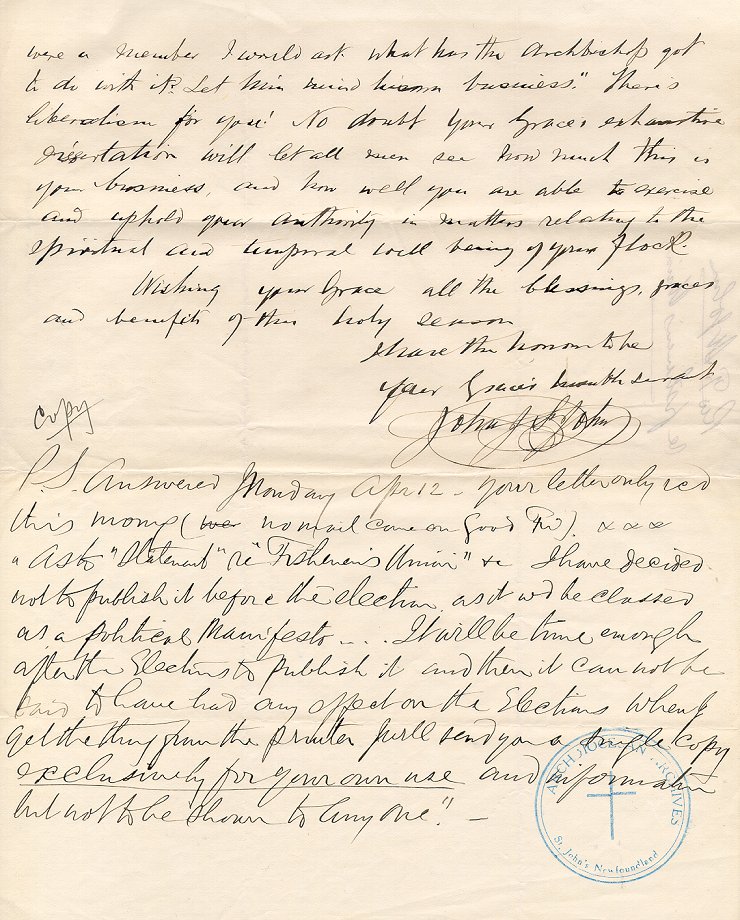 were a member I would ask what has the Archbishop got
to do with it? Let him mind his own business." There's
liberalism for you! No doubt your Grace's exhaustive
dissertation will let all men see how much this is
your business, and how well you are able to exercise
and uphold your authority in matters relating to the
spiritual and temporal well being of your flock.
Wishing your Grace all the blessings, graces
and benefits of this holy season
I have the honor to be
your Grace's humble servant
John J St John
Copy
P.S. Answered Monday Apr 12 - your letter only recd
this morng ( no mail came on Good Fri). x x x
" As to "Statement" re "Fishermen's Union" &c I have decided
not to publish it before the election, as it wd be classed
as a political Manifesto .... It will be time enough
after the Elections to publish it and then it can not be
said to have had any effect on the Elections When I
get the thing from the printer I will send you a single copy
exclusively for your own use and information
but not to be shown to anyone". -
ARCHDIOCESAN ARCHIVES
St. John's Newfoundland